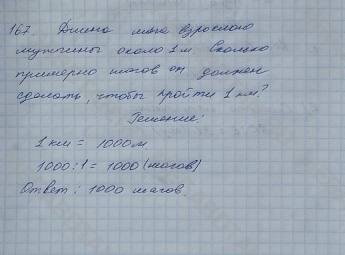 167. Длина шага взрослого
мужчины около 1 м. Сколько
примерно шагов он должен
сделать, чтобы пройти 1 км?
Решение:
1 км = 1000 м
1000 : 1 = 1000 (шагов)
Ответ: 1000 шагов.